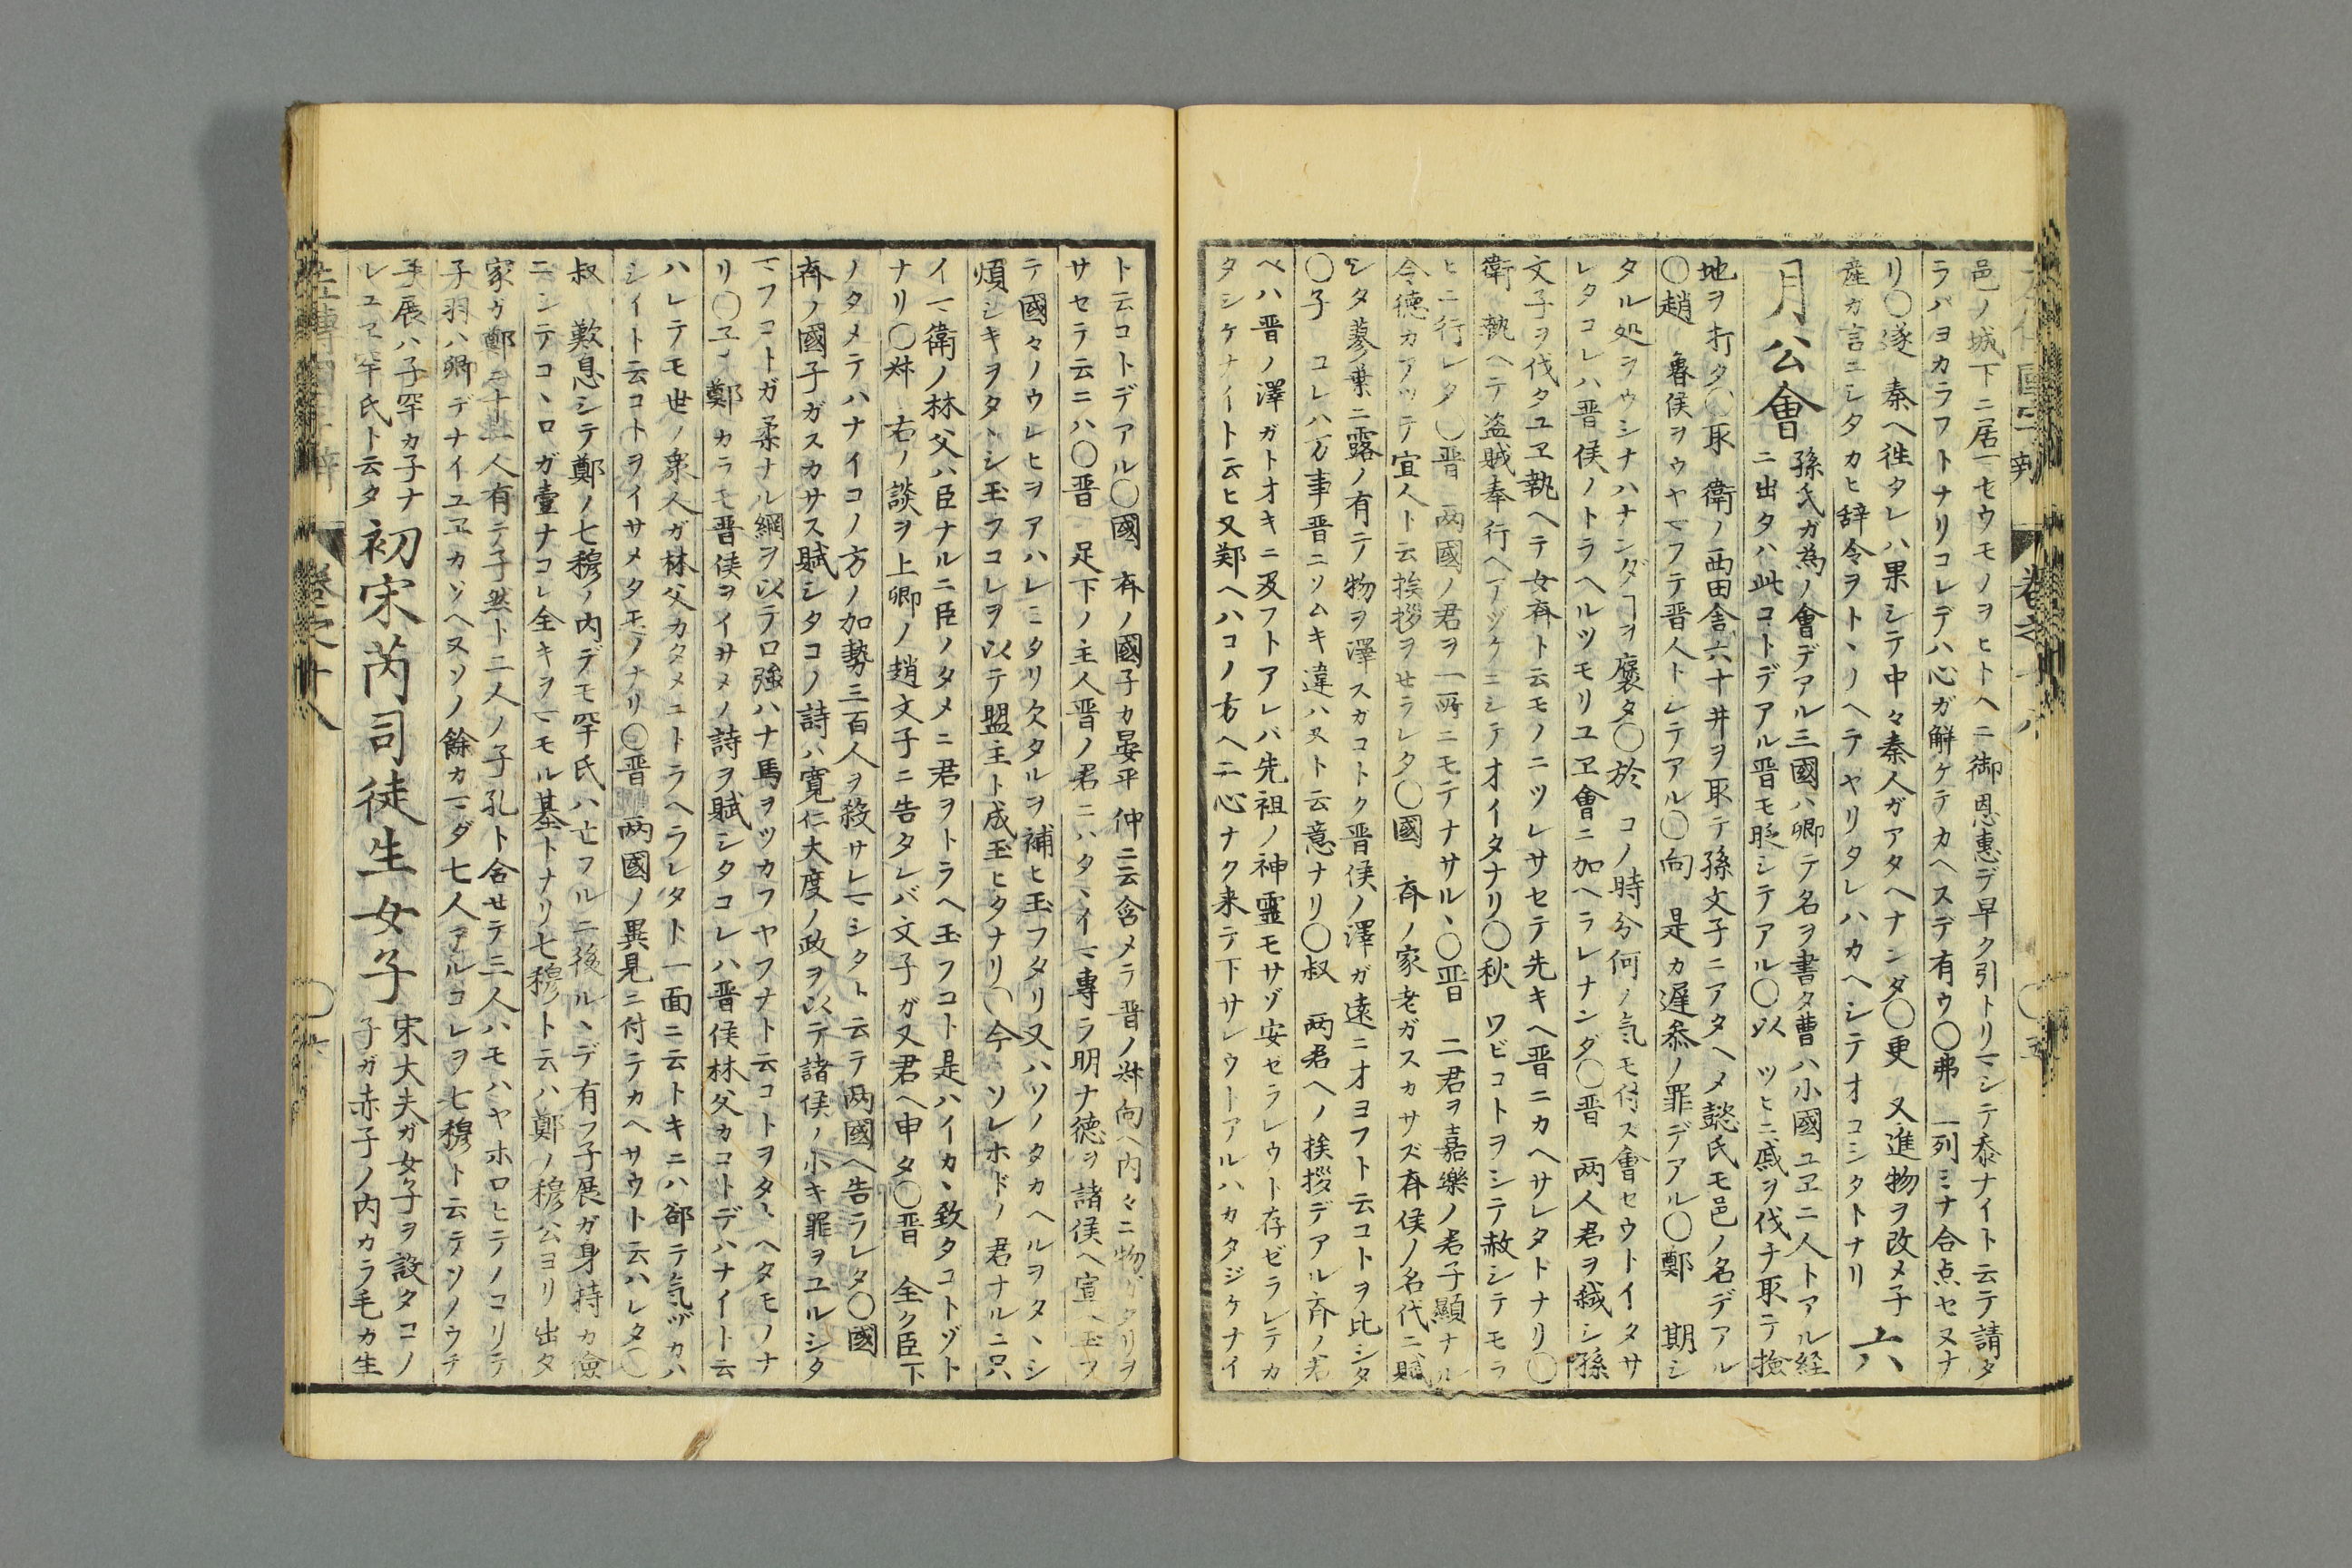 邑ノ城下ニ居マセウモノヲヒトヘニ御恩惠デ早ク引トリマシテ忝ナイト云テ請タ
ラバヨカラフトナリコレデハ心ガ解ケテカヘスデ有ウ〇弗 一列ミナ合点セヌナ
リ〇遂 秦ヘ徃タレハ果シテ中々秦人ガアタヘナンダ〇更 又進物ヲ改メ子
産カ言ニシタカヒ辞令ヲトヽノヘテヤリタレハカヘシテオコシタトナリ
六
月公會
孫氏ガ為ノ會デアル三國ハ卿テ名ヲ書タ曹ハ小國ユヱニ人トアル経
ニ出タハ此コトデアル晋モ貶シテアル〇以 ツヒニ戚ヲ伐チ取テ撿
地ヲ打タ〇取 衛ノ西田舎六十井ヲ取テ孫文子ニアタヘメ懿氏モ邑ノ名デアル
〇趙 魯侯ヲウヤマフテ晋人トシテアル〇向 是カ遅叅ノ罪デアル〇鄭 期シ
タル処ヲウシナハナンダヿヲ褒タ〇於 コノ時分何ノ気モ付ス會セウトイタサ
レタコレハ晋侯ノトラヘルツモリユヱ會ニ加ヘラレナンダ〇晋 两人君ヲ弑シ孫
文子ヲ伐タユヱ執ヘテ女齊ト云モノニツレサセテ先キヘ晋ニカヘサレタトナリ〇
衛 執ヘテ盗賊奉行ヘアヅケニシテオイタナリ〇秋 ワビコトヲシテ赦シテモラ
ヒニ行レタ〇晋 两國ノ君ヲ一所ニモテナサルヽ〇晋 二君ヲ嘉樂ノ君子顯ナル
令徳カアツテ宜人ト云挨拶ヲセラレタ〇國 齊ノ家老ガスカサズ齊侯ノ名代ニ賦
シタ蓼葉ニ露ノ有テ物ヲ澤スガコトク晋侯ノ澤ガ遠ニオヨフト云コトヲ比シタ
〇子 コレハ万事晋ニソムキ違ハヌト云意ナリ〇叔 两君ヘノ挨拶デアル齊ノ君
ベハ晋ノ澤ガトオキニ及フトアレバ先祖ノ神靈モサゾ安ゼラレウト存ゼラレテカ
タシケナイト云ヒ又鄭ヘハコノ方ヘ二心ナク来テ下サレウトアルハカタジケナイ
ト云コトデアル〇國 齊ノ國子カ晏平仲ニ云含メラ晋ノ叔向ヘ内々ニ物ガタリヲ
サセラ云ニハ〇晋 足下ノ主人晋ノ君ニハタヽイマ專ラ明ナ徳ヲ諸侯ヘ宣ヘ玉ヲ
テ國々ノウレヒヲアハレミタリ欠タルヲ補ヒ玉フタリ又ハソノタカヘルヲタヽシ
煩シキヲタヽシ玉フコレヲ以テ盟主ト成玉ヒタナリ〇今 ソレホドノ君ナルニ只
イマ衛ノ林父ハ臣ナルニ臣ノタメニ君ヲトラヘ玉フコト是ハイカヽ致タコトヅト
ナリ〇叔 右ノ談ヲ上卿ノ趙文子ニ告タレバ文子ガ又君ヘ申タ〇晋 全ク臣下
ノタメテハナイコノ方ノ加勢三百人ヲ殺サレマシタト云テ两國ヘ告ラレタ〇國
齊ノ國子ガスカサス賦シタコノ詩ハ寛仁大度ノ政ヲ以テ諸侯ノ小キ罪ヲユルシタ
マフコトガ柔ナル綱ヲ以テ口強ハナ馬ヲツカフヤフナト云コトヲタヽヘタモノナ
リ〇子 鄭カラモ晋侯ヲイサメノ詩ヲ賦シタコレハ晋侯林父カコトデハナイト云
ハレテモ世ノ衆人ガ林父カタメニトラヘラレタト一面ニ云トキニハ郤テ気ヅカハ
シイト云コトヲイサメタモノナリ〇晋 两國ノ異見ニ付テカヘサウト云ハレタ〇
叔 歎息シテ鄭ノ七穆ノ内デモ罕氏ハ亡フルニ後ルヽデ有フ子展ガ身持カ儉
ニシテコヽロガ壹ナコレ全キヲマモル基トナリ七穆ト云ハ鄭ノ穆公ヨリ出タ
家ガ鄭ニ十一人有テ子然ト二人ノ子孔ト合セテ三人ハモハヤホロヒテノコリテ
子羽ハ卿デナイユヱカゾヘヌソノ餘カマダ七人アルコレヲ七穆ト云テソノウチ
子展ハ子罕カ子ナ
レユヱ罕氏ト云タ
初宋芮司徒生女子
宋大夫ガ女子ヲ設タコノ
子ガ赤子ノ内カラ毛カ生
卷之十八